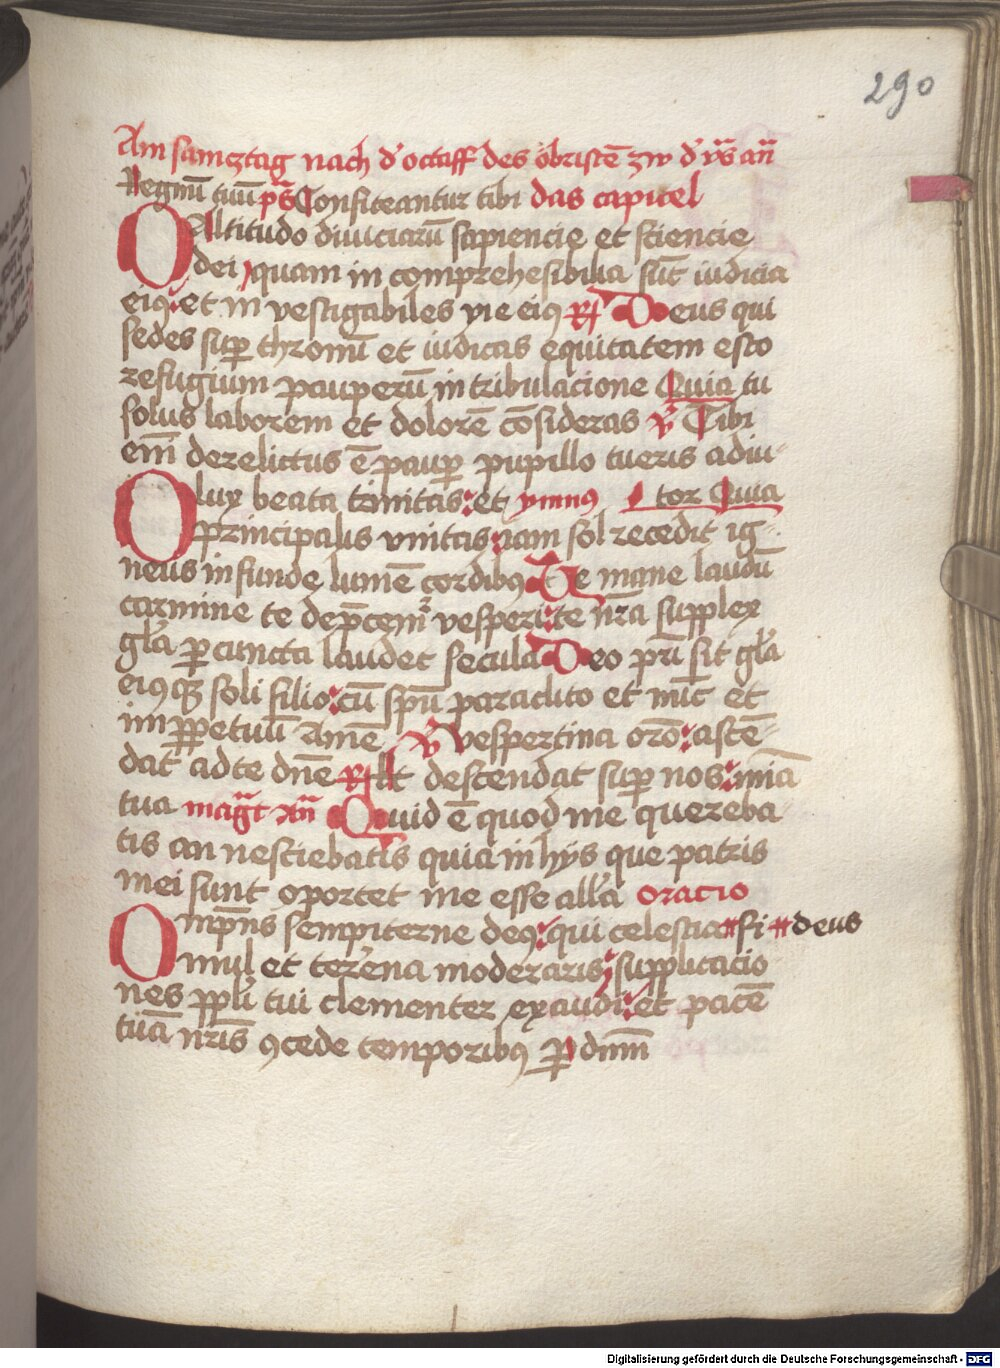 290
Am samcztag nach d' octaff des öbristē zw d' vꝭ an̄
Regnū tuū pꝭ Confiteantur tibi das capitel
O Altitudo diuiciarū sapiencie et sciencie
dei quam in comprehesibilia sūt iudicia
eiꝰ et in vestigabiles vie eiꝰ ℟ Deus qui
sedes suꝑ thronū et iudicas equitatem esto
refugium pauperū in tribulacione Quia tu
solus laborem et dolorē cōsideras ℣ Tibi
em̄ derelictus ē pauꝑ pupillo tueris adiu-
O lux beata trinitas et ymnꝰ tor Quia
principalis vnitas iam sol recedit ig-
neus infunde lumē cordibꝰ Te mane laudū
carmine te dep̄cemᷣ vesperi te nr̄a supplex
gl'a ꝑ cuncta laudet secula Deo pr̄i sit gl'a
eiꝰqꝫ soli filio cū sp̄u paraclito et nūc et
im ꝑpetuū Amē ℣ Vespertina or̄o ascē-
dat ad te dn̄e ℟ Et descendat suꝑ nos mīa
tua mag̅t an̄ Quid ē quod me quereba
tis an nesciebatis quia in hijs que patris
mei sunt oportet me esse all'a oracio
Omp̄ns sempiterne deꝰ qui celestia # si # deus
mul et terrena moderaris supplicacio
nes ppl'i tui clementer exaudi et pacē
tuā nr̄is ꝯcede temporibꝰ ꝑ dn̄m
Digitalisierung gefördert durch die Deutsche Forschungsgemeinschaft - DFG